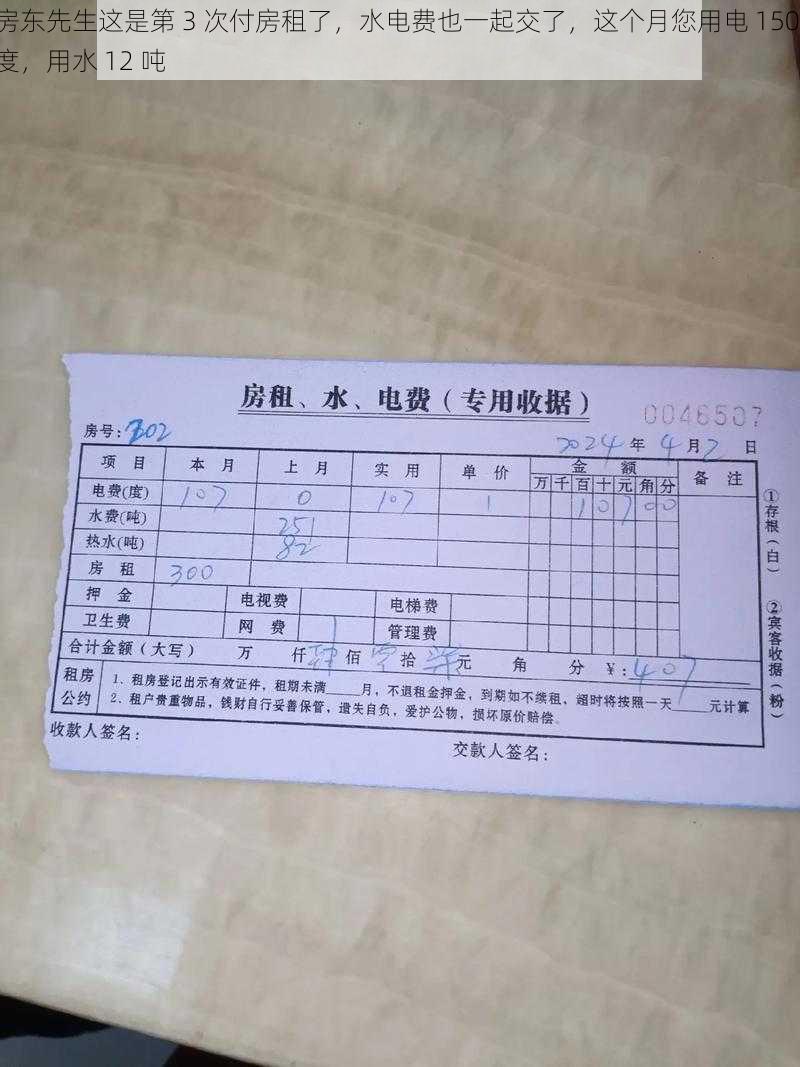 房东先生这是第 3 次付房租了，水电费也一起交了，这个月您用电 150
度，用水 12 吨
房租、水、电费（专用收据）
0046507
房号:302
2024 年 4 月 2 日
项 目 本 月 上 月 实 用 单 价 金 额 备 注
万 千 百 十 元 角 分
电费(度) 107 0 107 1 1 0 7 0 0
水费(吨) 251
热水(吨) 82
房 租 300
押 金 电视费 电梯费
卫生费 网 费 管理费
合计金额（大写） 万 仟 肆 佰 零 拾 柒 元 角 分 ￥:407
租房公约
1、租房登记出示有效证件，租期未满____月，不退租金押金，到期如不续租，超时将按照一天____元计算
2、租户贵重物品，钱财自行妥善保管，遗失自负，爱护公物，损坏原价赔偿。
收款人签名: 交款人签名:
①存根（白） ②宾客收据（粉）